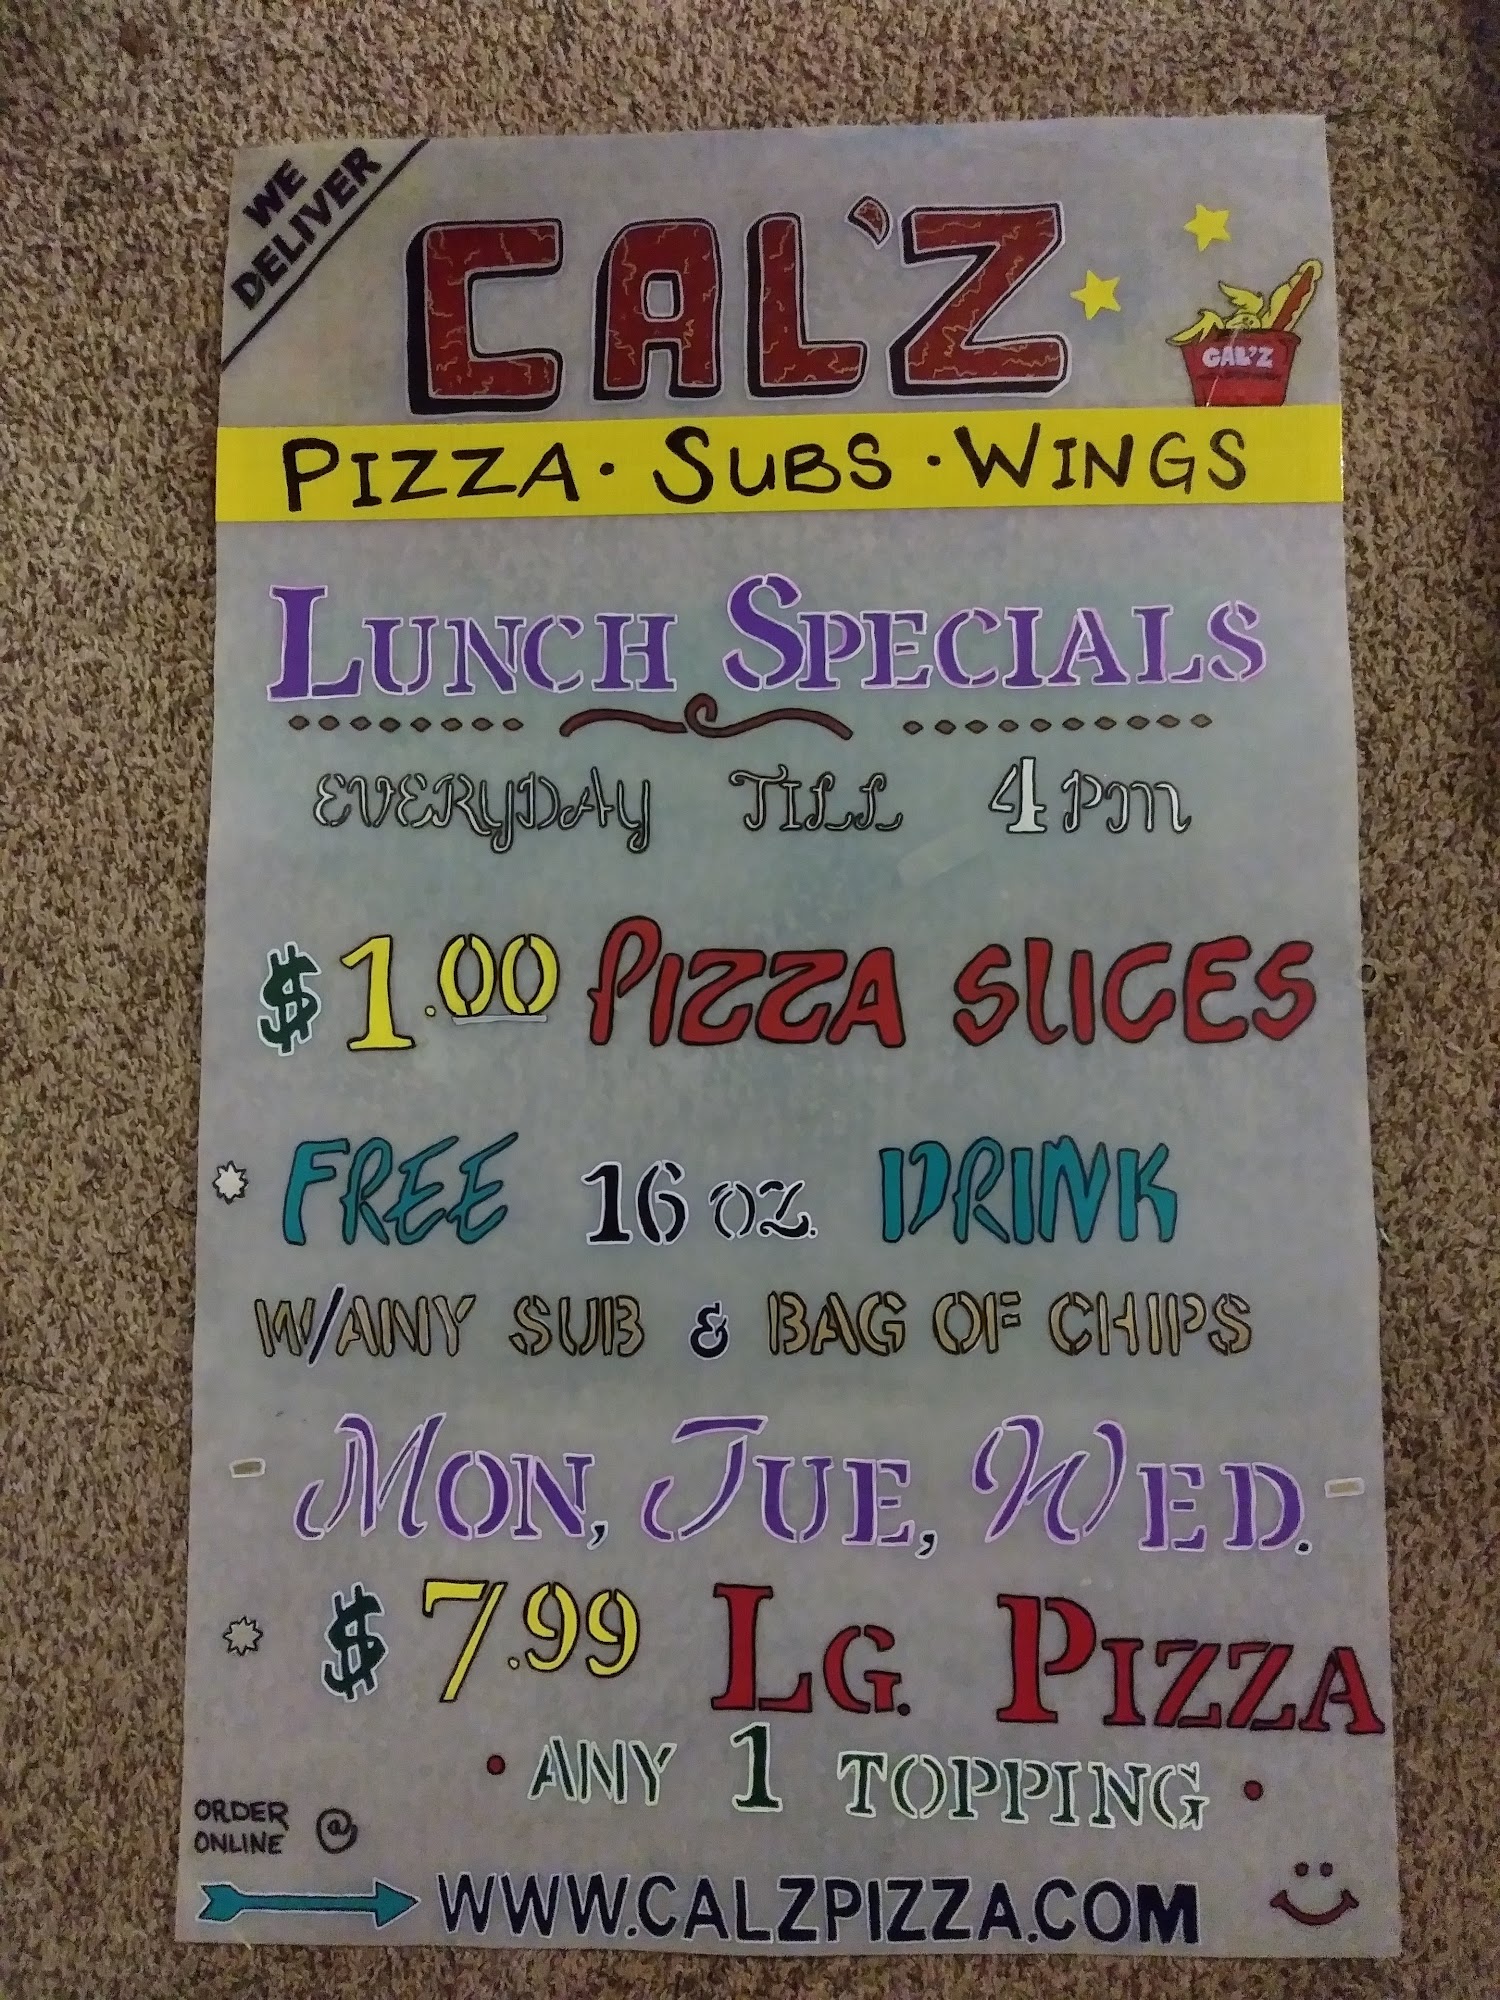 WE
DELIVER
CAL'Z
CAL'Z
PIZZA · SUBS · WINGS
LUNCH SPECIALS
EVERYDAY TILL 4PM
$1.00 PIZZA SLICES
FREE 16 OZ. DRINK
W/ANY SUB & BAG OF CHIPS
- MON, TUE, WED. -
$7.99 LG. PIZZA
• ANY 1 TOPPING •
ORDER
ONLINE @
WWW.CALZPIZZA.COM